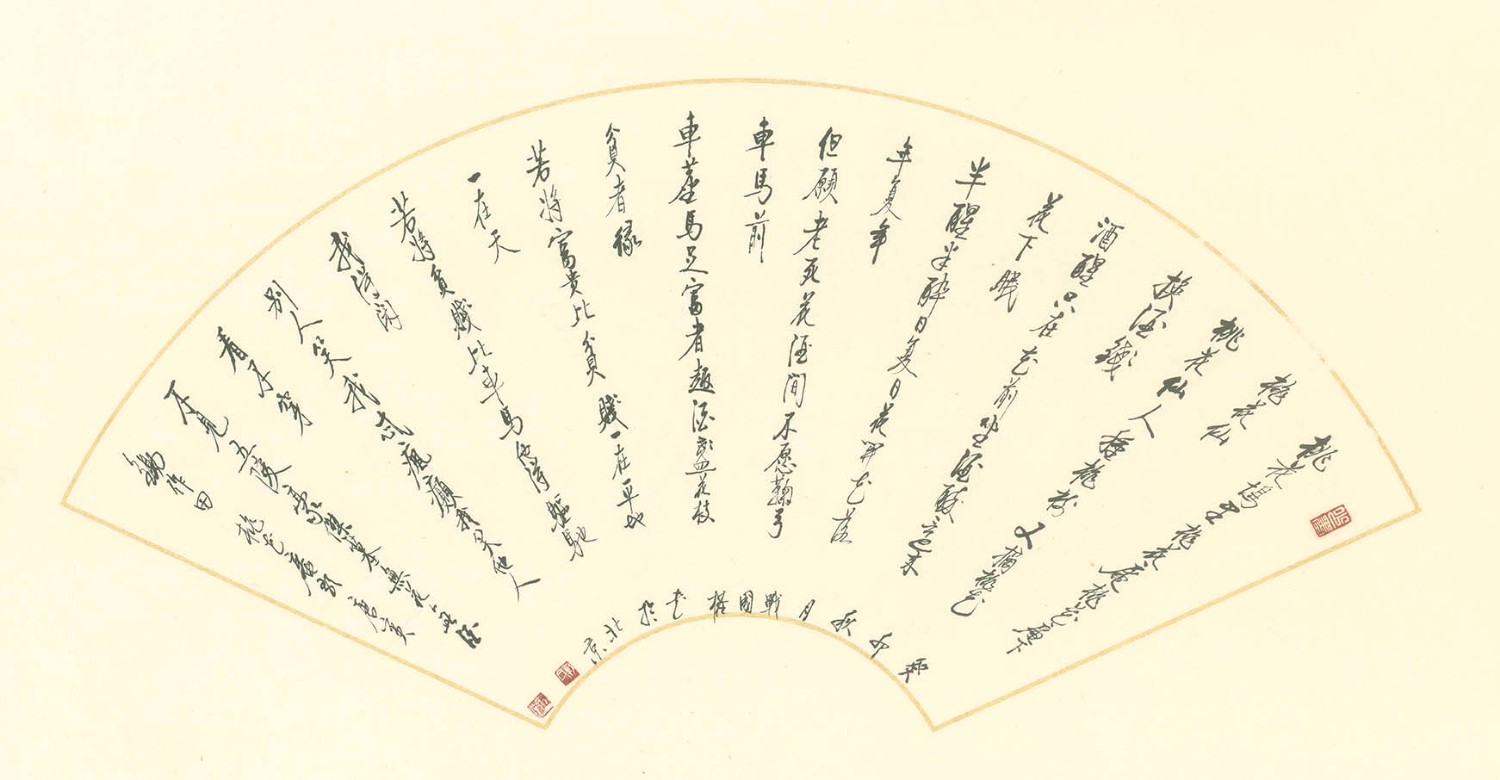 桃花塢里桃花庵桃花庵下
桃花仙
桃花仙人種桃樹又摘桃花
換酒錢
酒醒只在花前坐酒醉還來
花下眠
半醒半醉日复日花開花落
年复年
但願老死花酒間不愿鞠躬
車馬前
車塵馬足富者趣酒盞花枝
貧者緣
若將富貴比貧賤一在平地
一在天
若將貧賤比車馬他得驅馳
我得閑
別人笑我忒瘋癲我笑他人
看不穿
不見五陵豪傑墓無花無酒
鋤作田 桃花庵歌 唐寅
卯秋月戰國權書於北京